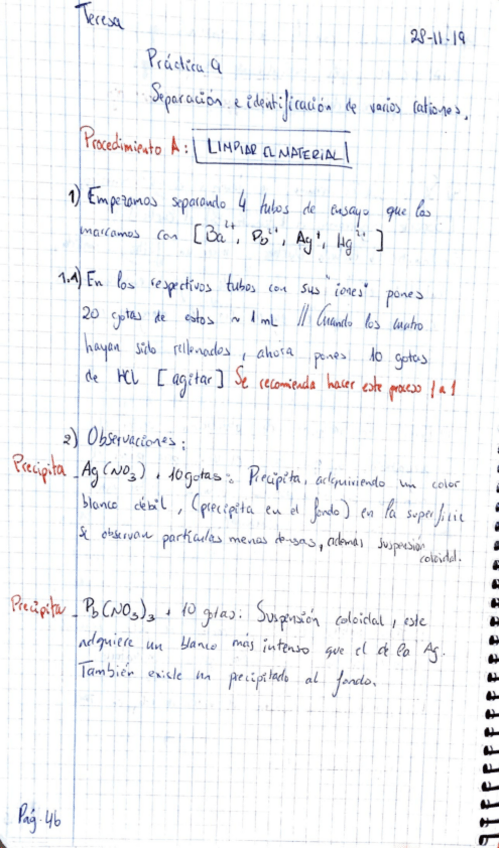 Teresa
28-11-19
Práctica 9
Separación e identificación de varios cationes.
Procedimiento A: LIMPIAR EL MATERIAL
1) Empezamos separando 4 tubos de ensayo que los
marcamos con [Ba²⁺, Pb²⁺, Ag⁺, Hg²⁺]
1.1) En los respectivos tubos con sus "iones" pones
20 gotas de estos ~ 1 mL // Cuando los cuatro
hayan sido rellenados, ahora pones 10 gotas
de HCl [agitar] Se recomienda hacer este proceso 1 a 1
2) Observaciones:
Precipita - Ag(NO₃) + 10 gotas: Precipita, adquiriendo un color
blanco débil, (precipita en el fondo) en la superficie
se observan partículas menos densas, además suspensión
coloidal.
Precipita - Pb(NO₃)₃ + 10 gotas: Suspensión coloidal, este
adquiere un blanco más intenso que el de la Ag.
También existe un precipitado al fondo.
Pág. 46